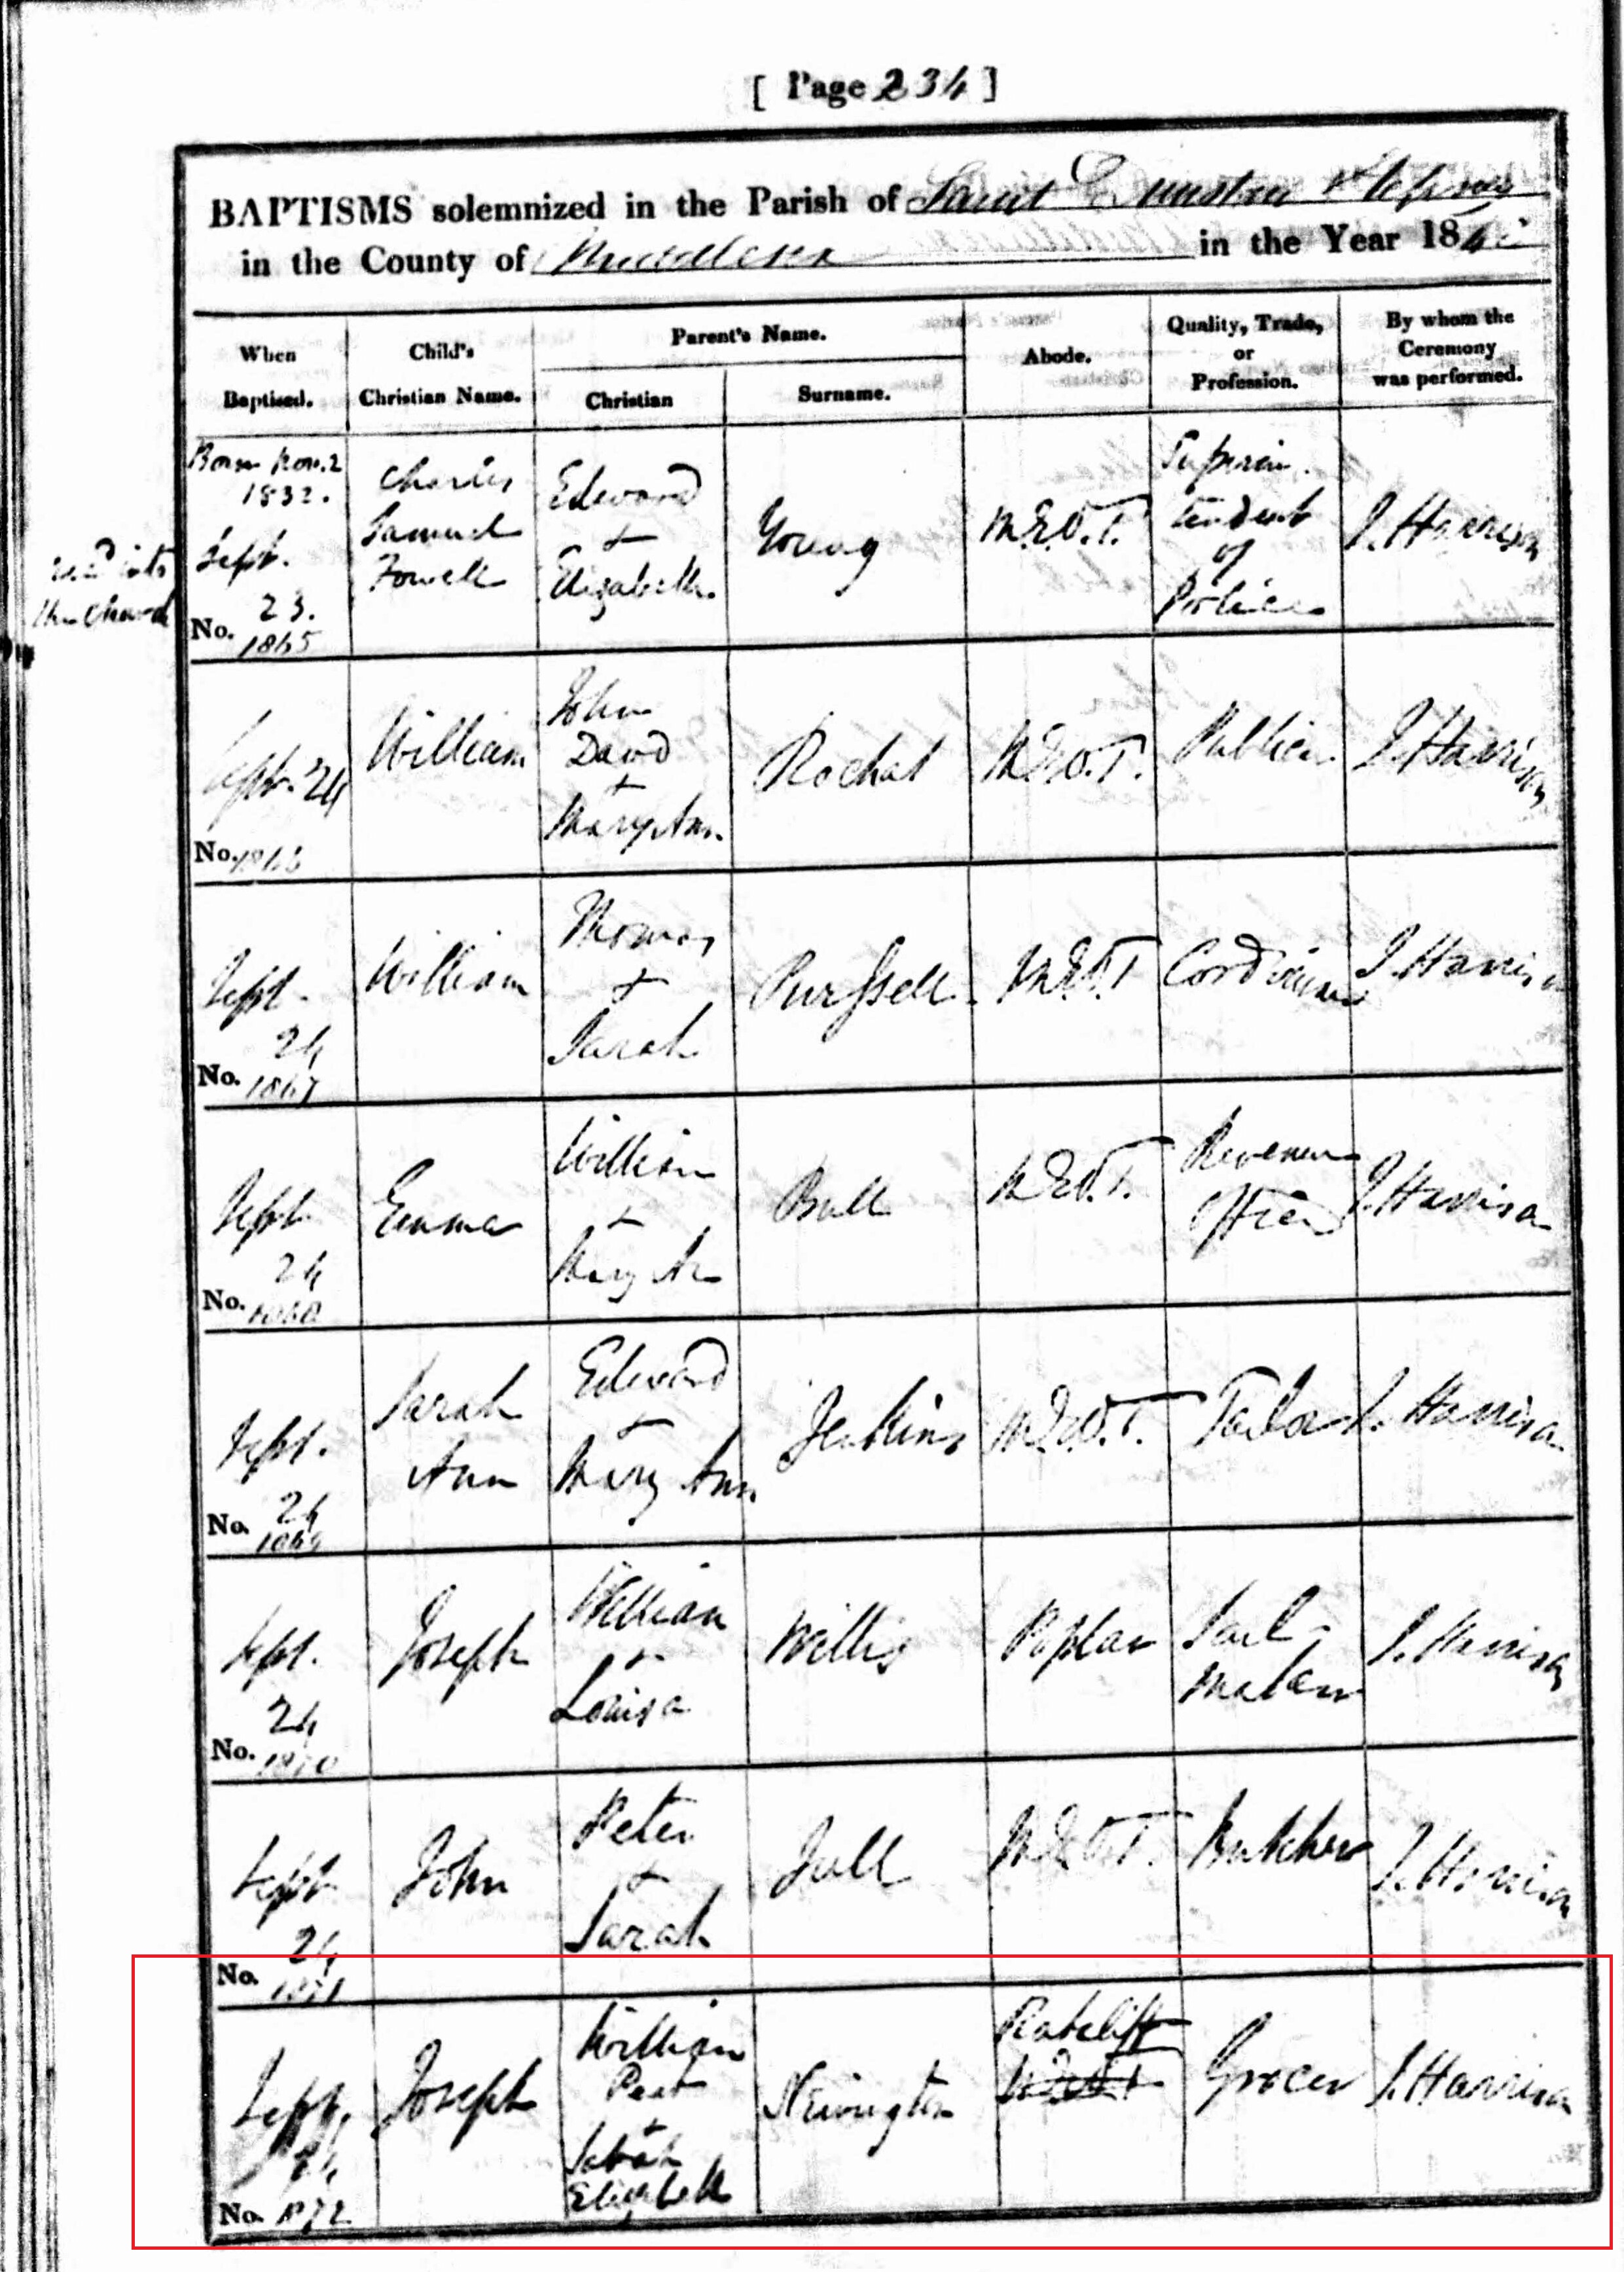 [ Page 234 ]
BAPTISMS solemnized in the Parish of Saint Dunstan Stepney
in the County of Middlesex in the Year 184
When Baptised.
Child's Christian Name.
Parent's Name.
Christian
Surname.
Abode.
Quality, Trade, or Profession.
By whom the Ceremony was performed.
Born Nov. 2
1832.
Sept.
23.
No. 1865
Charles
Samuel
Fowell
Edward
+
Elizabeth.
Young
M.E.O.T.
Superin-
tendent
of
Police
J. Harrison
the Church
Sept. 24
No. 1866
William
John
David
+
Mary Ann.
Rochat
M.E.O.T.
Publican
J. Harrison
Sept.
24
No. 1867
William
Thomas
+
Sarah
Purssell
M.E.O.T
Cordwainer
J. Harrison
Sept.
24
No. 1868
Emma
William
+
Mary An
Bull
M.E.O.T.
Revenue
Officer
J. Harrison
Sept.
24
No. 1869
Sarah
Ann
Edward
+
Mary Ann
Jenkins
M.E.O.T.
Tailor
J. Harrison
Sept.
24
No. 1870
Joseph
William
+
Louisa
Willis
Poplar
Sail-
maker
J. Harrison
Sept.
24
No. 1871
John
Peter
+
Sarah
Jull
M.E.O.T.
Butcher
J. Harrison
Sept.
24
No. 1872
Joseph
William
Peat
+
Sarah
Elizabeth
Newington
Ratcliff
M.E.O.T
Grocer
J. Harrison